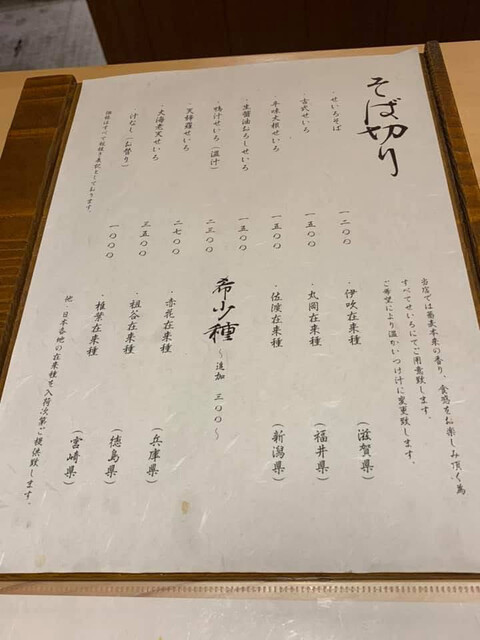 そば切り
・せいろそば 一二〇〇
・古式せいろ 一五〇〇
・辛味大根せいろ 一五〇〇
・生醤油おろしせいろ 一五〇〇
・鴨汁せいろ（温汁） 二三〇〇
・天婦羅せいろ 二七〇〇
・大海老天せいろ 三五〇〇
汁なし（お替り） 一〇〇〇
価格はすべて税抜き表記としております。
当店では蕎麦本来の香り、食感をお楽しみ頂く為
すべてせいろにてご用意致します。
ご希望により温かいつけ汁に変更致します。
・伊吹在来種 （滋賀県）
・丸岡在来種 （福井県）
・佐渡在来種 （新潟県）
希少種 〜追加 三〇〇〜
・赤花在来種 （兵庫県）
・祖谷在来種 （徳島県）
・椎葉在来種 （宮崎県）
他、日本各地の在来種を入荷次第ご提供致します。